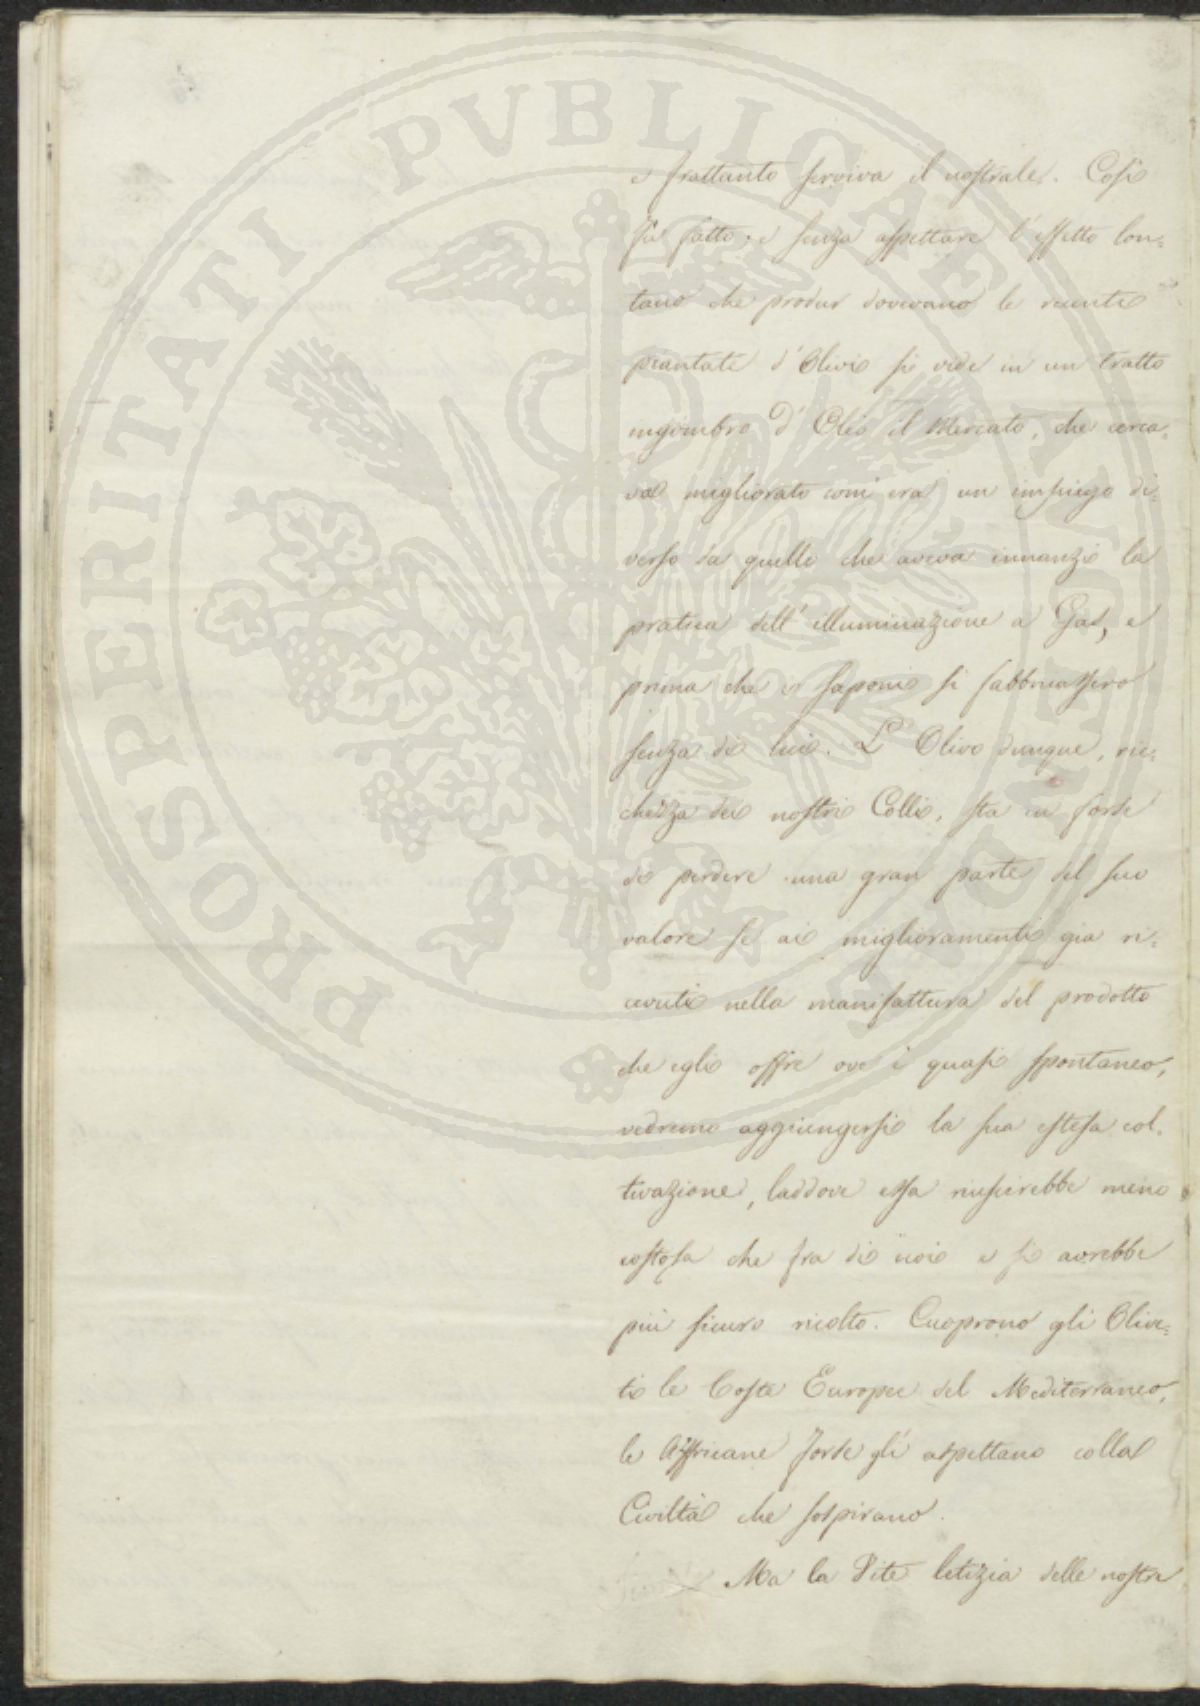 e frattanto serviva il nostrale. Così
fù fatto; e senza aspettare l'effetto lon=
tano che produr dovevano le recenti
piantate d'Olivi si vide in un tratto
ingombro d'Olio il Mercato, che cerca=
va migliorato com'era un impiego di=
verso da quello che aveva innanzi la
pratica dell'illuminazione a Gas, e
prima che i saponi si fabbricassero
senza di lui. L'Olivo dunque, ric=
chezza dei nostri Colli, sta in forse
di perdere una gran parte del suo
valore se ai miglioramenti gia ri=
cevuti nella manifattura del prodotto
che egli offre ove è quasi spontaneo,
vedremo aggiungersi la sua estesa col=
tivazione, laddove essa riuscirebbe meno
costosa che fra di noi e si avrebbe
più sicuro ricolto. Cuoprono gli Olive=
ti le Coste Europee del Mediterraneo,
le Affricane forse gli aspettano colla
Civiltà che sospirano.
Ma la Vite letizia delle nostre
PROSPERITATI PVBLICAE AVGENDAE